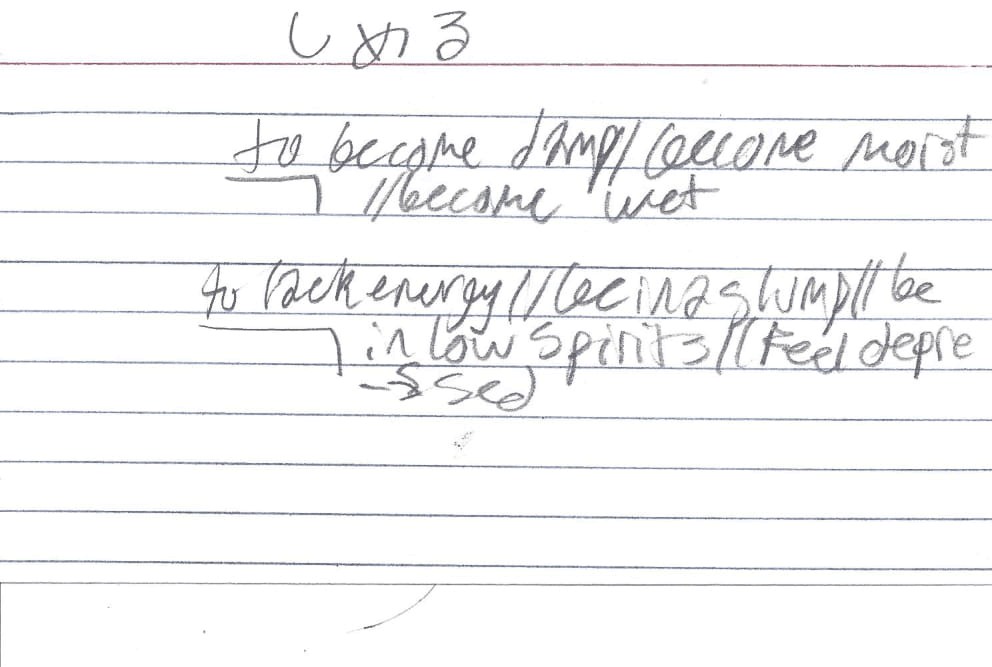 しめる
to become damp//become moist
//become wet
to lack energy//be in a slump//be
in low spirits//feel depre
-ssed